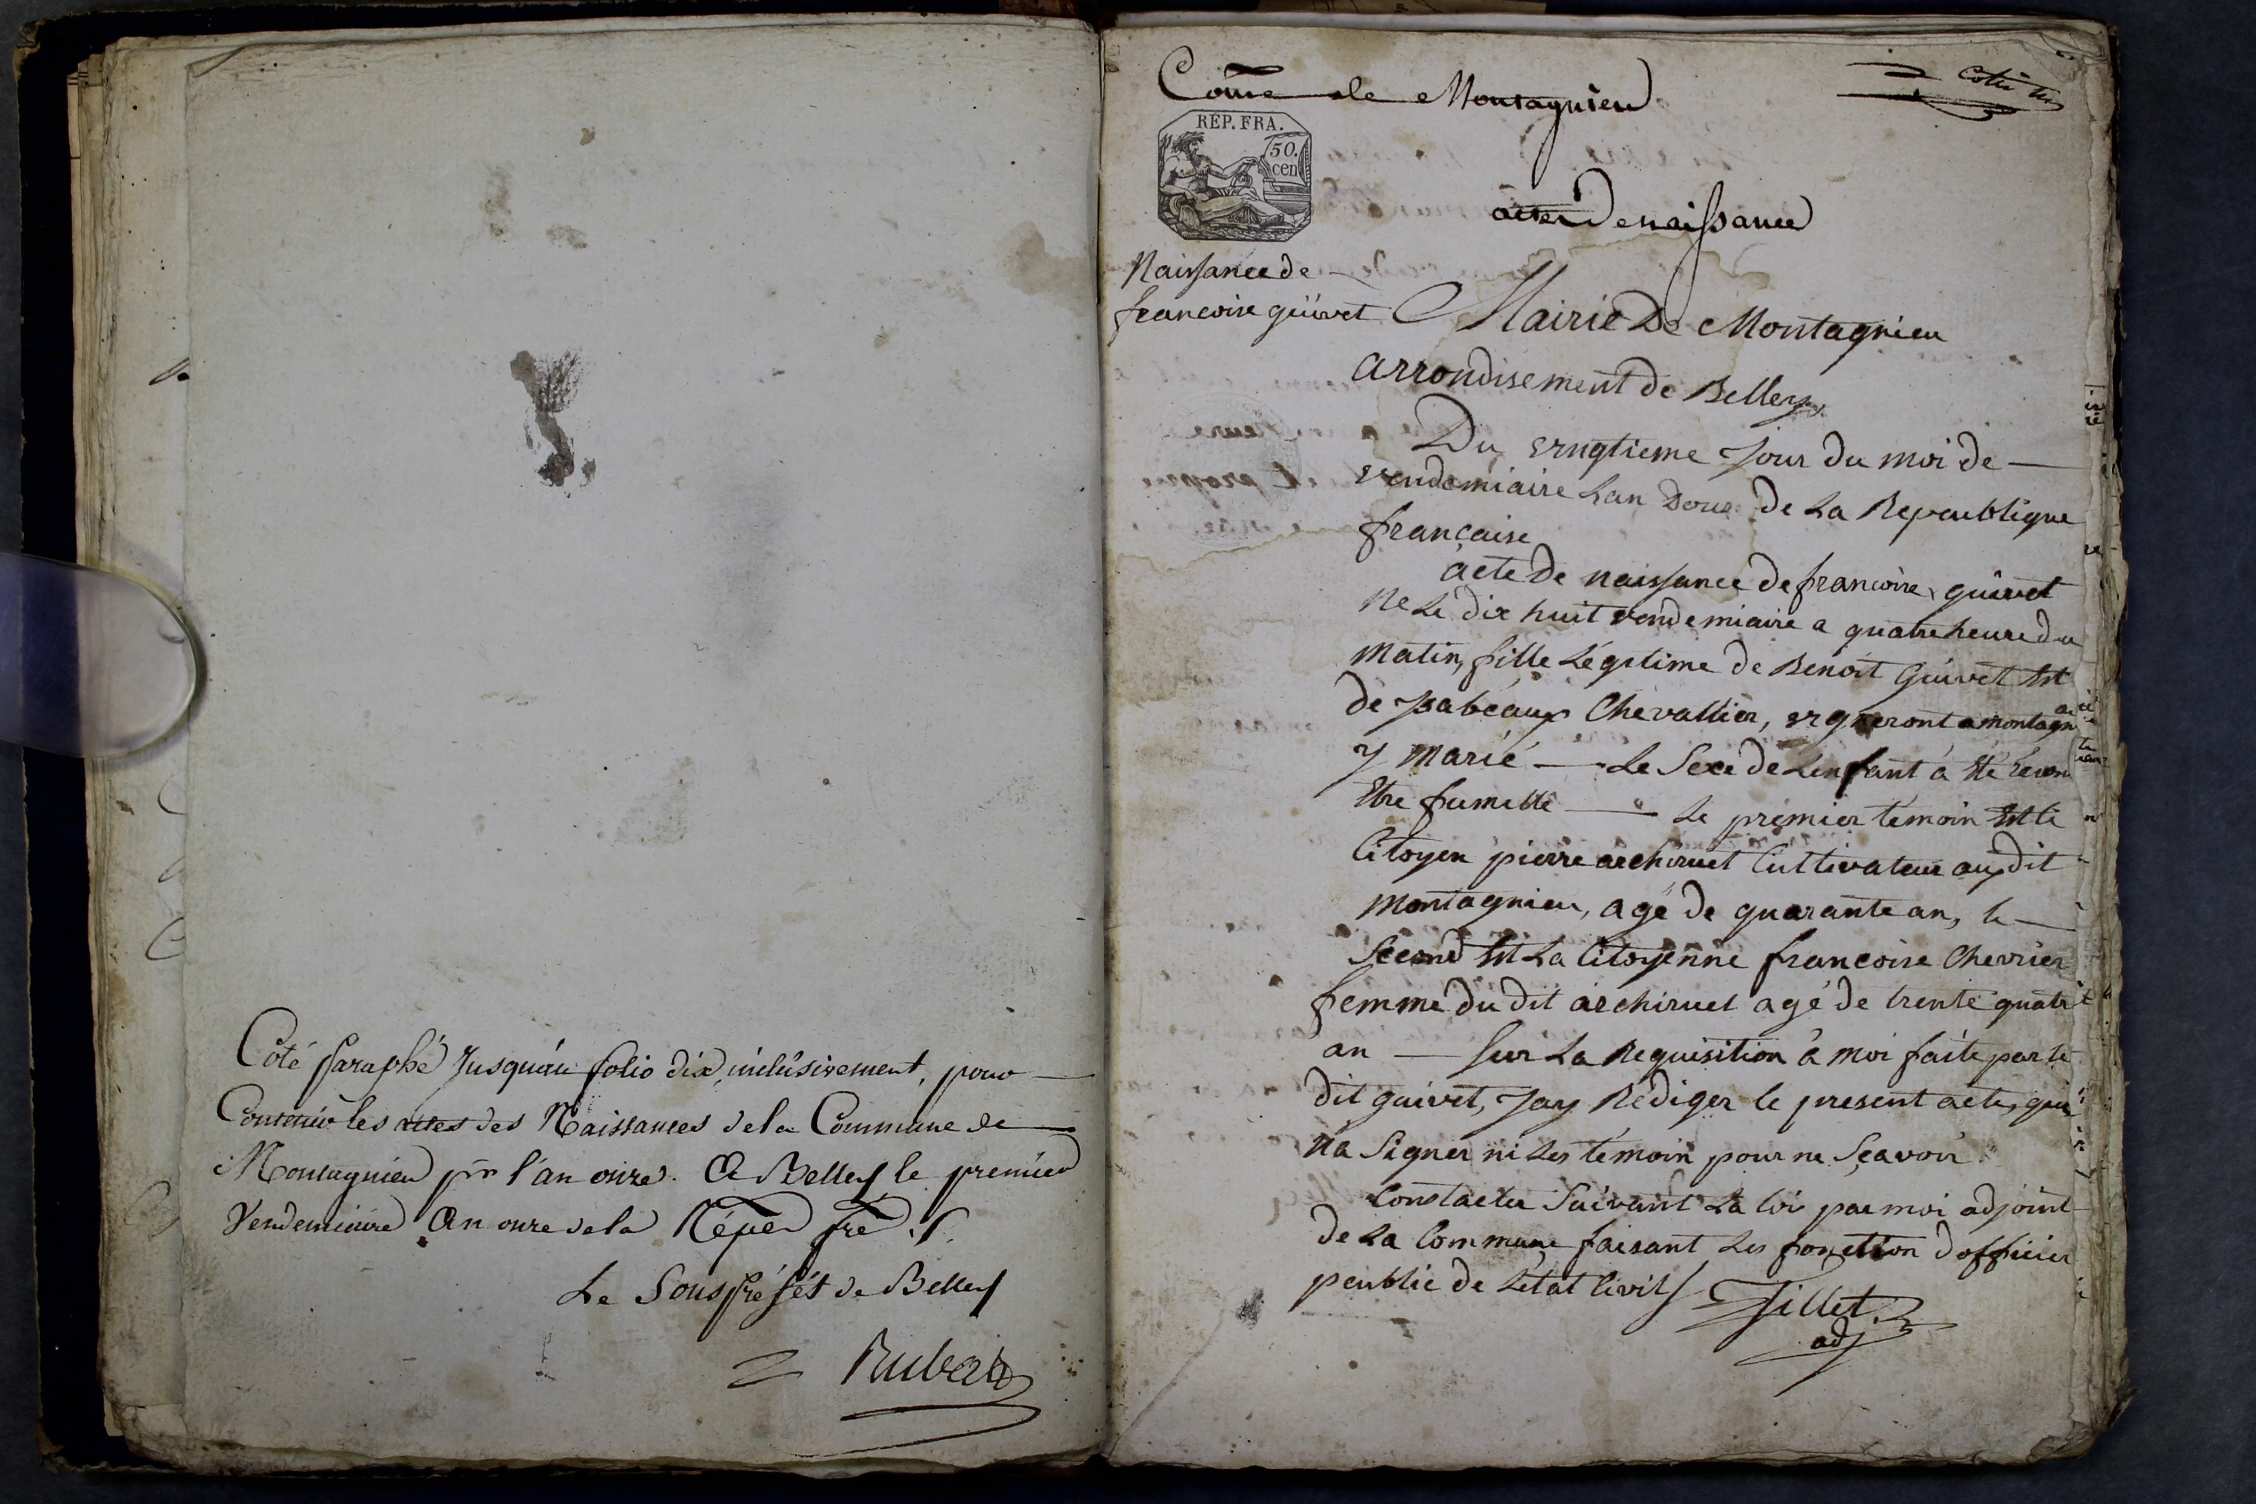 Coté paraphé jusqu'au folio dix, inclusivement, pour
Contenir les actes des Naissances de la Commune de
Montagnieu pr l'an onze. A Belley le premier
Vendemiaire An onze de la Répu fre ./.
Le Souspréfét de Belley
Rubat
Comne de Montagnieu
RÉP. FRA.
50.
cen
actes De naissance
Naissance de
francoise guivet
Mairie De Montagnieu
arrondisement de Belley
Du vingtieme Jour du moi de
vendemiaire Lan Douz de La Republique
française
acte De naissance de francoise guivet
Ne Le dix huit vendemiaire a quatre heure du
matin, fille Légitime de Benoit Guivet et
de Isabeaux Chevallier, vigneront a montagn
y marié Le Sexe de Lenfant à Eté recon
Etre fumelle Le premier témoin Est le
Citoyen pierre archiruel Cultivateur audit
Montagnieu, agé de quarante an, le
Second Est La Citoyenne francoise Chevrier
femme du dit archiruel agé de trente quatr
an Sur La Requisition à moi faite par le
dit guivet, Jay Rédiger le present acte, qui
na Signer ni Les témoin pour ne Sçavoir
Constater Suivant La loi par moi adjoint
de La Commune faisant Les fonction dofficier
peublic de Létat Civil Tillet
adj